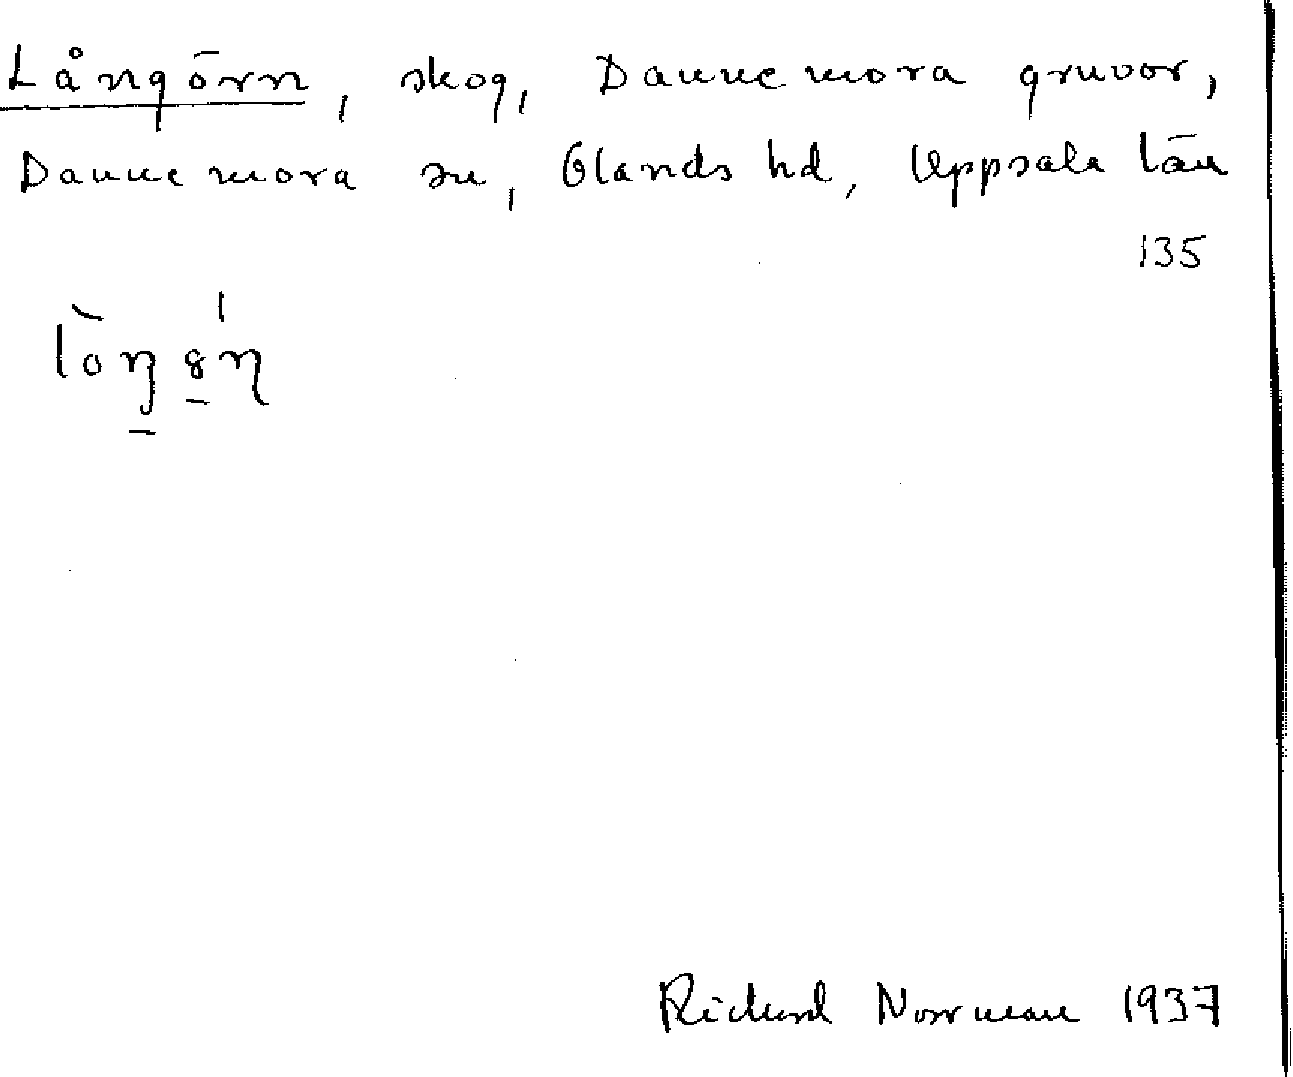 Långörn, skog, Dannemora gruvor,
Dannemora sn, Olands hd, Uppsala län
135
Rickard Norrman 1937